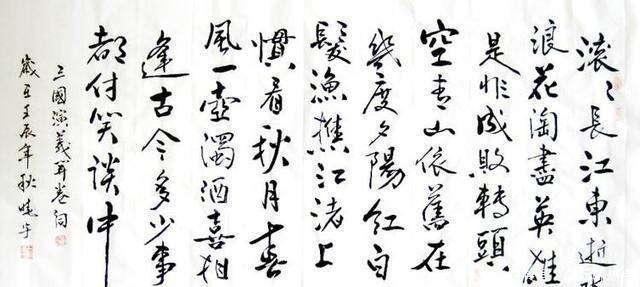 滚〻長江東逝水
浪花淘盡英雄
是非成敗轉頭
空青山依舊在
幾度夕陽紅白
髮漁樵江渚上
慣看秋月春
風一壺濁酒喜相
逢古今多少事
都付笑談中
三國演義開卷詞
歲在壬辰年秋